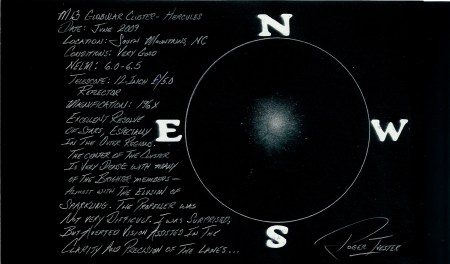 M13 Globular Cluster - Hercules
Date: June 2009
Location: South Mountains, NC
Conditions: Very Good
NELM: 6.0-6.5
Telescope: 12 Inch f/5.0
Reflector
Magnification: 196X
Excellent Resolve
Of Stars, Especially
In The Outer Regions.
The Center Of The Cluster
Is Very Dense With Many
Of The Brighter Members -
Almost With The Elusion Of
Sparkling. The Propeller Was
Not Very Difficult. I Was Surprised,
But Averted Vision Assisted In The
Clarity And Precision Of The Lanes...
N
E
W
S
Roger Ivester